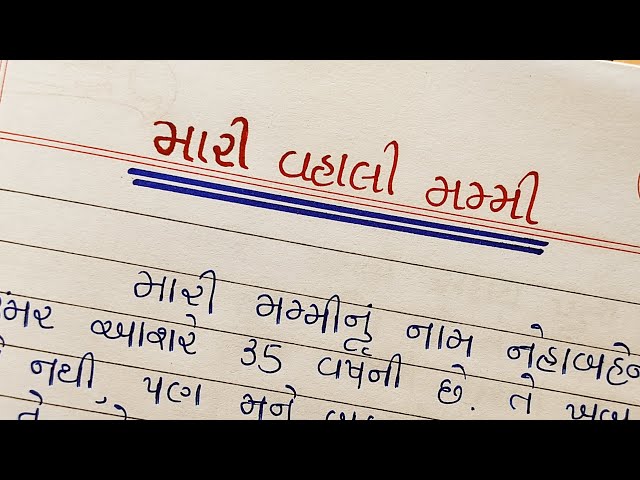 મારી વહાલી મમ્મી
મારી મમ્મીનું નામ નેહાબહેન
ઉંમર આશરે 35 વર્ષની છે. તે
નથી, પણ મને